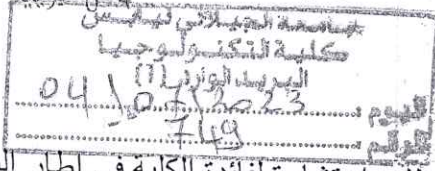 جامعة الجيلالي ليابس
كلية التكنولوجيا
البريد الوارد (1)
اليوم : 04/07/2023
الرقم : 749
لفائدة الكلية في إطار